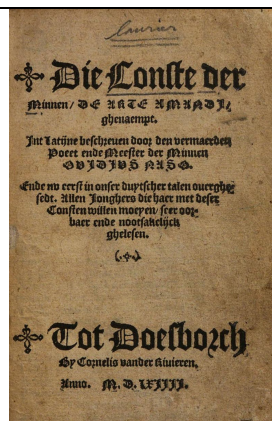 Die Conste der
Minnen / DE ARTE AMANDI,
ghenaempt.
Int Latijne beschreuen door den vermaerden
Poeet ende Meester der Minnen
OVIDIVS NASO.
Ende nv eerst in onser duytscher talen ouerghe
sedt. Allen Jonghers die haer met deser
Consten willen moeyen / seer oor-
baer ende nootsakelijck
ghelesen.
Tot Doesborch
By Cornelis vander Riuieren.
Anno. M. D. LXIIII.